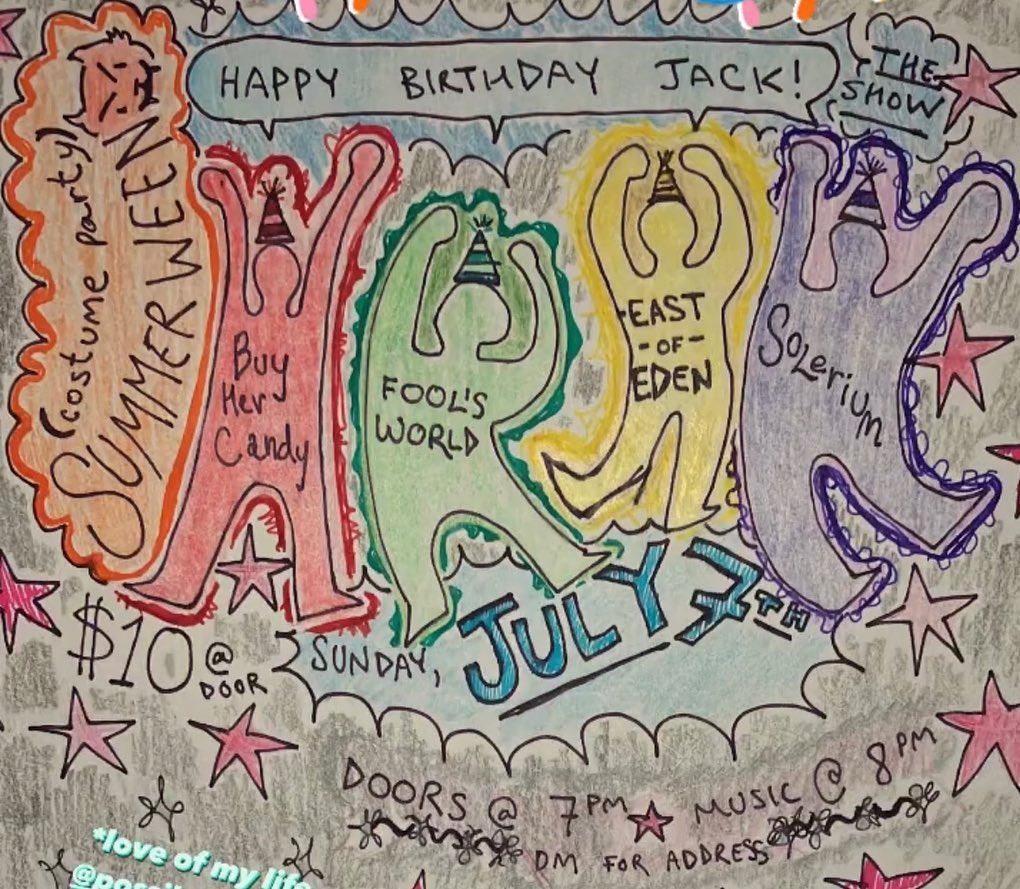 HAPPY BIRTHDAY JACK!
THE
SHOW
SUMMERWEEN
(costume party)
Buy
Her
Candy
FOOL'S
WORLD
EAST
-OF-
EDEN
Solerium
$10 @
DOOR
SUNDAY, JULY 7TH
DOORS @ 7PM ★ MUSIC @ 8PM
DM FOR ADDRESS
*love of my life